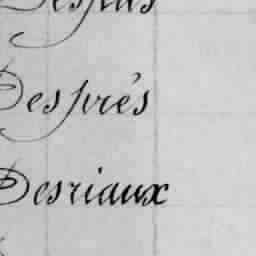 Desprès
Desriaux